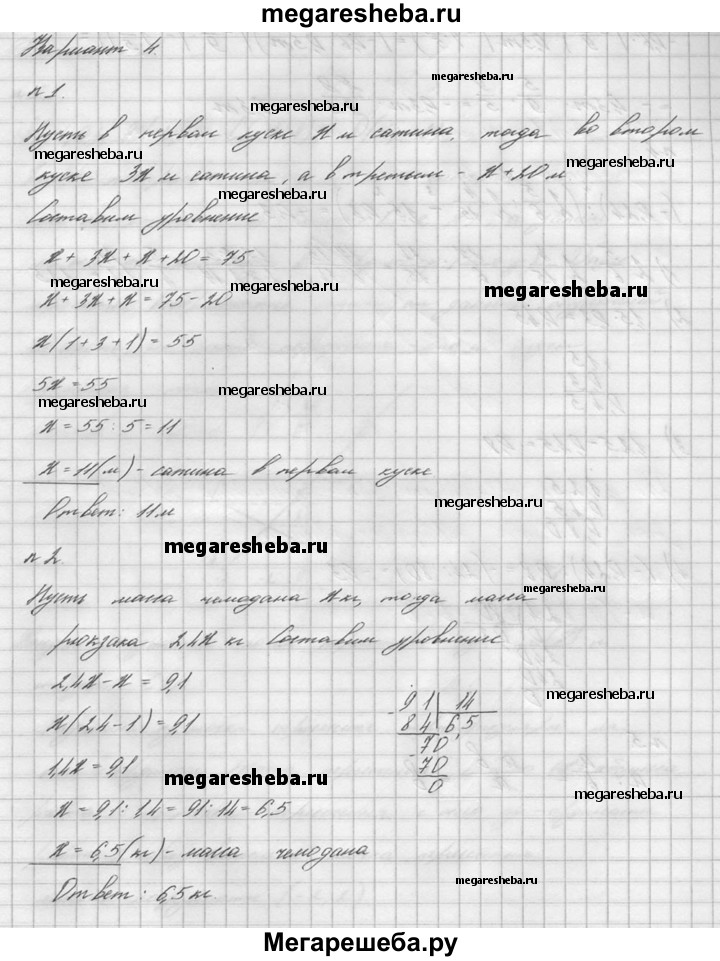 megaresheba.ru
Вариант 4.
megaresheba.ru
n 1.
megaresheba.ru
Пусть в первом куске x м сатина, тогда во втором
megaresheba.ru
megaresheba.ru
куске 3x м сатина, а в третьим - x + 20 м
megaresheba.ru
Составим уровнение
x + 3x + x + 20 = 75
megaresheba.ru
megaresheba.ru
megaresheba.ru
x + 3x + x = 75 - 20
x(1 + 3 + 1) = 55
5x = 55
megaresheba.ru
megaresheba.ru
x = 55 : 5 = 11
x = 11(м) - сатина в первом куске
megaresheba.ru
Ответ: 11 м
megaresheba.ru
n 2.
megaresheba.ru
Пусть масса чемодана x кг, тогда масса
рюкзака 2,4x кг. Составим уровнение
2,4x - x = 9,1
megaresheba.ru
x(2,4 - 1) = 9,1
91 | 14
- 84 | 6,5
- 70
70
0
1,4x = 9,1
megaresheba.ru
megaresheba.ru
x = 9,1 : 1,4 = 91 : 14 = 6,5
x = 6,5(кг) - масса чемодана
megaresheba.ru
Ответ: 6,5 кг.
Мегарешеба.ру